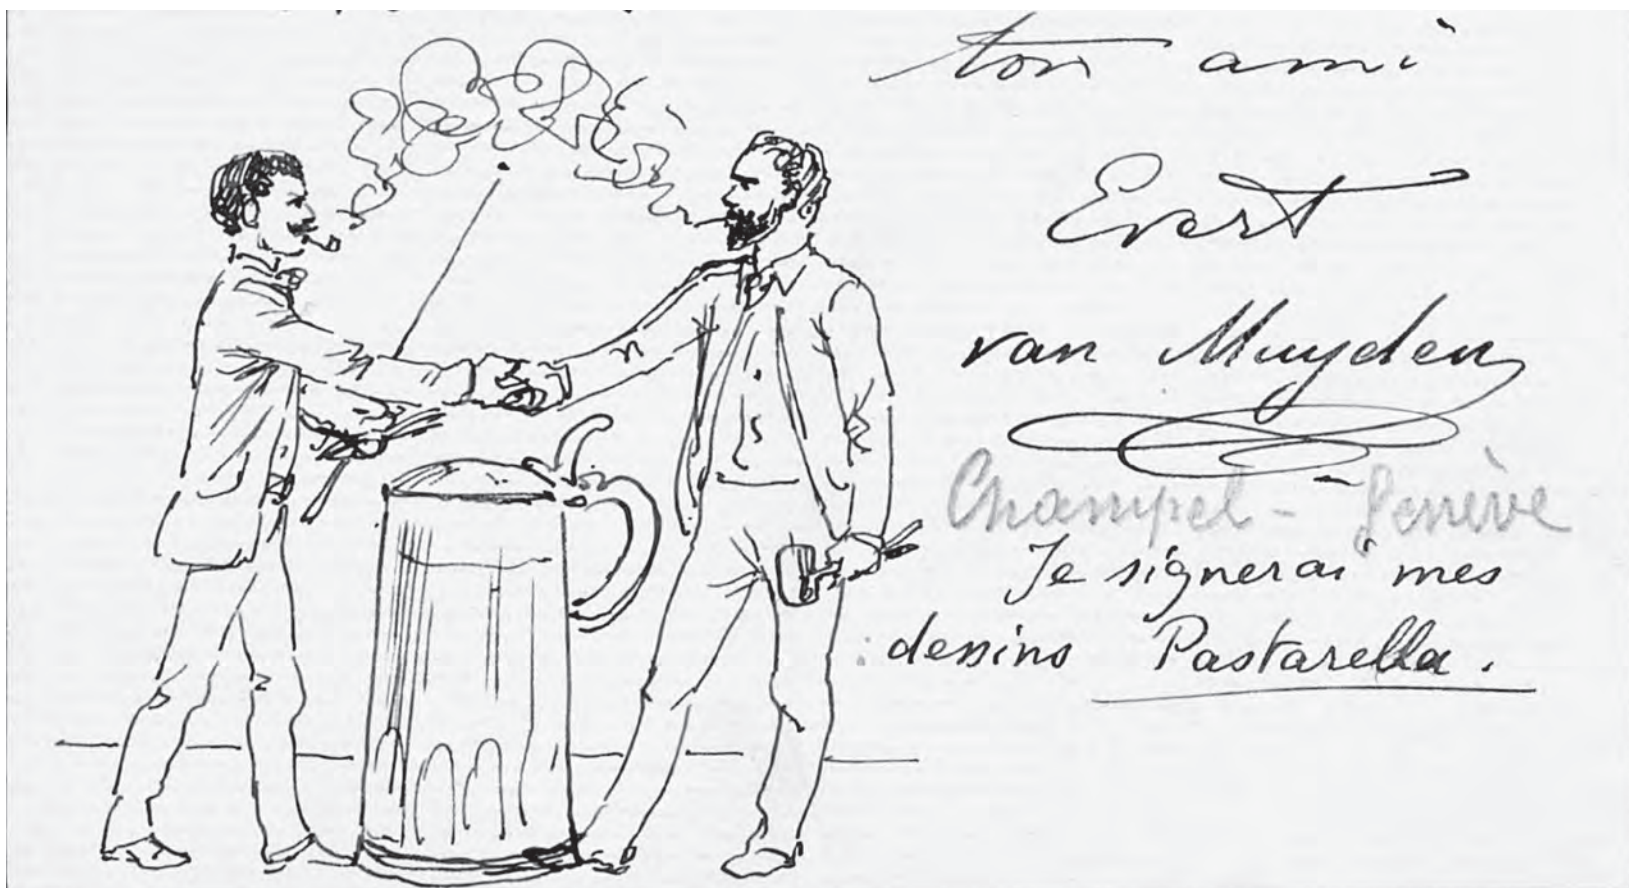 ton ami
Evert
van Muyden
Champel - Genève
Je signerai mes
dessins Pastarella.